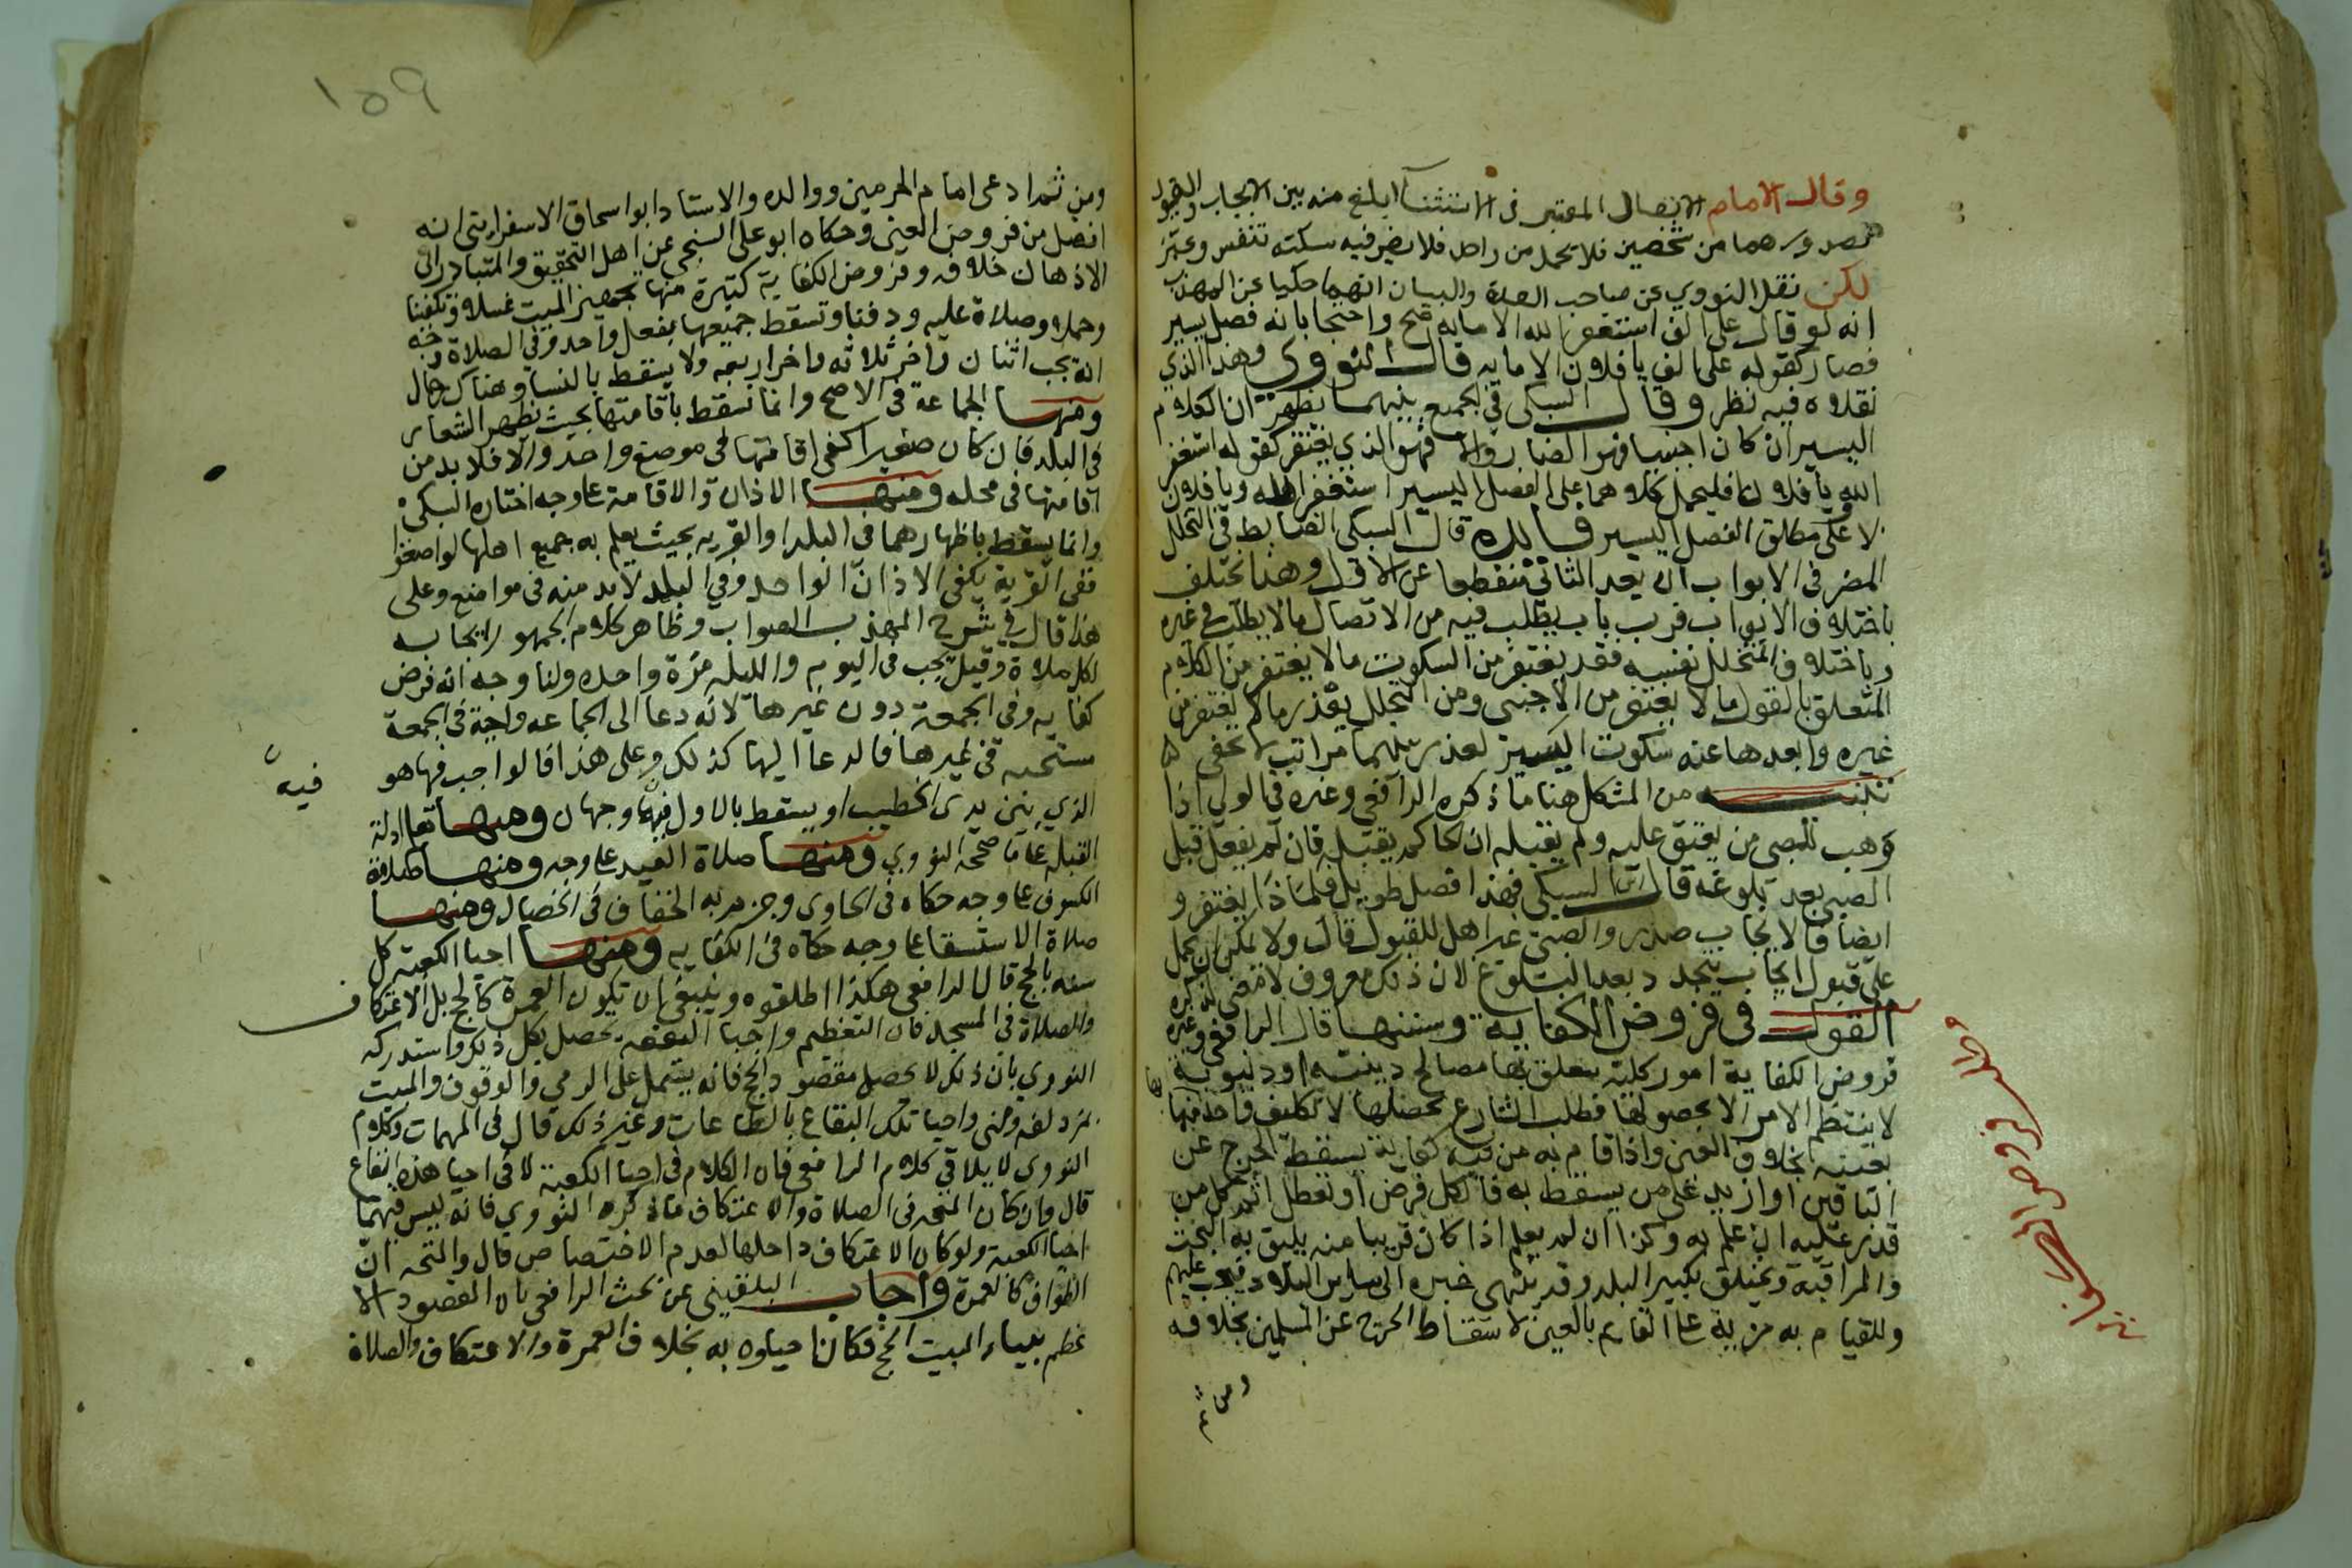 وقال الامام الاتصال المعتبر في الاستثنا ابلغ منه بين الايجاب والقبول
لصدورهما من شخصين فلا تحمل من واحد فلا يضر فيه سكته تنفس وعي
لكن نقل النووي عن صاحب العدة والبيان انهما حكيا عن المهذب
انه لو قال علي الف استغفر الله الا مايه صح واحتجا بانه فصل يسير
فصار كقوله علي الف يا فلان الا مايه قال النووي وهذا الذي
نقلاه فيه نظر وقال السبكي في الجمع بينهما يظهر ان الكلام
اليسير ان كان اجنبيا فهو الضار والا فهو الذي يغتفر كقوله استغفر
الله ويا فلان فليحمل كلاهما على الفصل اليسير استغفر الله ويا فلان
لا على مطلق الفصل اليسير فايده قال السبكي الضابط في التخلل
المضر في الابواب ان يعد الثاني منقطعا عن الاول وهذا يختلف
باختلاف الابواب فرب باب يطلب فيه من الاتصال ما لا يطلب في غيره
وباختلاف المتخلل نفسه فقد يغتفر من السكوت ما لا يغتفر من الكلام
المتعلق بالقول ما لا يغتفر من الاجنبي ومن التخلل بعذر ما لا يغتفر من
غيره وابعدها عنه سكوت اليسير لعذر بينهما مراتب لا تخفى
تنبيه من المشكل هنا ما ذكره الرافعي وغيره في الولي اذا
وهب للصبي من يعتق عليه ولم يقبله ان الحاكم يقبله فان لم يفعل قبل
الصبي بعد بلوغه قال ابن السبكي فهذا فصل طويل فلماذا يغتفر و
ايضا فالايجاب صدر والصبي غير اهل للقبول قال ولا يمكن ان يحمل
على قبول ايجاب يتجدد بعد البلوغ لان ذلك معروف لا معنى لذكره
القول في فروض الكفاية وسننها قال الرافعي وغيره
فروض الكفاية امور كلية تتعلق بها مصالح دينية او دنيوية
لا ينتظم الامر الا بحصولها فطلب الشارع تحصيلها لا تكليف واحد منها
بعينه بخلاف العين واذا قام به من فيه كفاية يسقط الحرج عن
الباقين او ازيد على من يسقط به فالكل فرض او تعطل اثم كل من
قدر عليه ان علم به وكذا ان لم يعلم اذا كان قريبا منه يليق به البحث
والمراقبة ويختلق بكبر البلد وقد ينتهي خبره الى ساير البلاد فيجب عليهم
وللقيام به مزية على القايم بالعين لاسقاط الحرج عن المسلمين بخلافه
ومن ثم
ومن ثم ادعى امام الحرمين ووالده والاستاد ابو اسحاق الاسفرايني انه
افضل من فروض العين وحكاه ابو علي السنجي عن اهل التحقيق والمتبادر الى
الاذهان خلافه وفروض الكفاية كثيرة منها تجهيز الميت غسلا وتكفينا
وحملا وصلاة عليه ودفنا وتسقط جميعها بفعل واحد وفي الصلاة وجه
انه يجب اثنان واخر ثلاثه واخر اربعه ولا يسقط بالنسا وهناك رجال
ومنها الجماعة في الاصح وانما تسقط باقامتها بحيث تظهر الشعاير
في البلد فان كان صغيرا كفى اقامتها في موضع واحد والا فلا بد من
اقامتها في محله ومنها الاذان والاقامة على وجه اختاره السبكي
وانما يسقط باظهارهما في البلد او القرية بحيث يعلم به جميع اهلها لو اصغوا
ففي القرية يكفي الاذان الواحد وفي البلد لا بد منه في مواضع وعلى
هذا قال في شرح المهذب الصواب وظاهر كلام الجمهور ايجابه
لكل صلاة وقيل يجب في اليوم والليله مرة واحده ولنا وجه انه فرض
كفايه وفي الجمعة دون غيرها لانه دعا الى الجماعه واجبة في الجمعة
مستحبه في غيرها فالدعا اليها كذلك وعلى هذا فالواجب فيها هو
فيه
الذي بين يدي الخطيب او يسقط بالاول فيها وجهان ومنها تعلم ادلة
القبلة على ما صححه النووي ومنها صلاة العيد على وجه ومنها صلاة
الكسوف على وجه حكاه في الحاوي وجزم به الخفاف في الخصال ومنها
صلاة الاستسقا على وجه حكاه في الكفايه ومنها احيا الكعبه كل
سنه بالحج قال الرافعي هكذا اطلقوه وينبغي ان تكون العمرة كالحج بل الاعتكاف
والصلاة في المسجد فان التعظيم واحيا البقعه يحصل بكل ذلك واستدركه
النووي بان ذلك لا يحصل مقصود الحج فانه يشتمل على الرمي والوقوف والمبيت
بمزدلفه ومنى واحيا تلك البقاع بالطاعات وغير ذلك قال في المهمات وكلام
النووي لا يلاقي كلام الرافعي فان الكلام في احيا الكعبة لا في احيا هذه البقاع
قال وان كان المتجه في الصلاة والاعتكاف ما ذكره النووي فانه ليس فيهما
احيا الكعبة ولو كان الاعتكاف داخلها لعدم الاختصاص قال والمتجه ان
الطواف كالعمرة واجاب البلقيني عن بحث الرافعي بان المقصود الا
عظم ببناء البيت الحج فكان احياوه به بخلاف العمرة والاعتكاف والصلاة